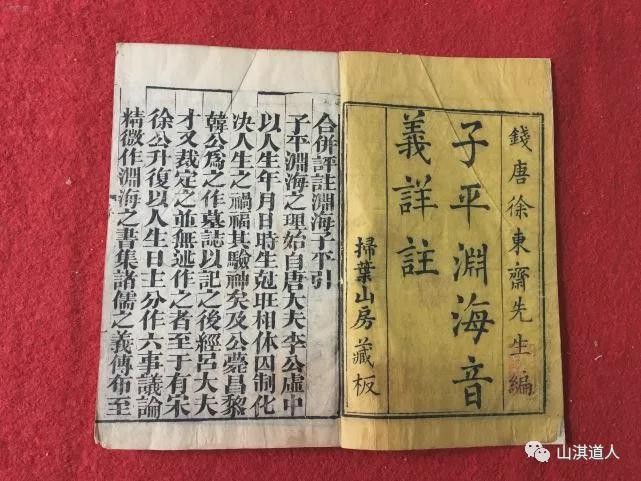 錢唐徐東齋先生編
子平淵海音
義詳註
掃葉山房藏板
合併評註淵海子平引
子平淵海之理始自唐大夫李公虛中
以人生年月日時生剋旺相休囚制化
决人生之禍福其驗神矣及公薨昌黎
韓公爲之作墓誌以記之後經呂大夫
才又裁定之並無述作之者至于有宋
徐公升復以人生日主分作六事議論
精微作淵海之書集諸儒之義傳布至
山淇道人